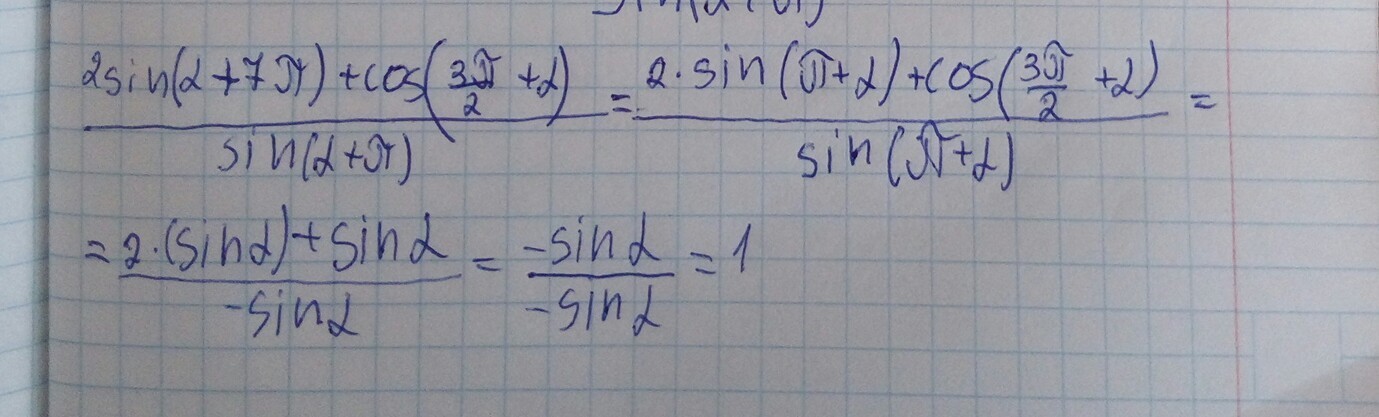 2sin(α+7π)+cos(3π/2+α) / sin(α+π) = 2·sin(π+α)+cos(3π/2+α) / sin(π+α) =
= 2·(sinα)+sinα / -sinα = -sinα / -sinα = 1